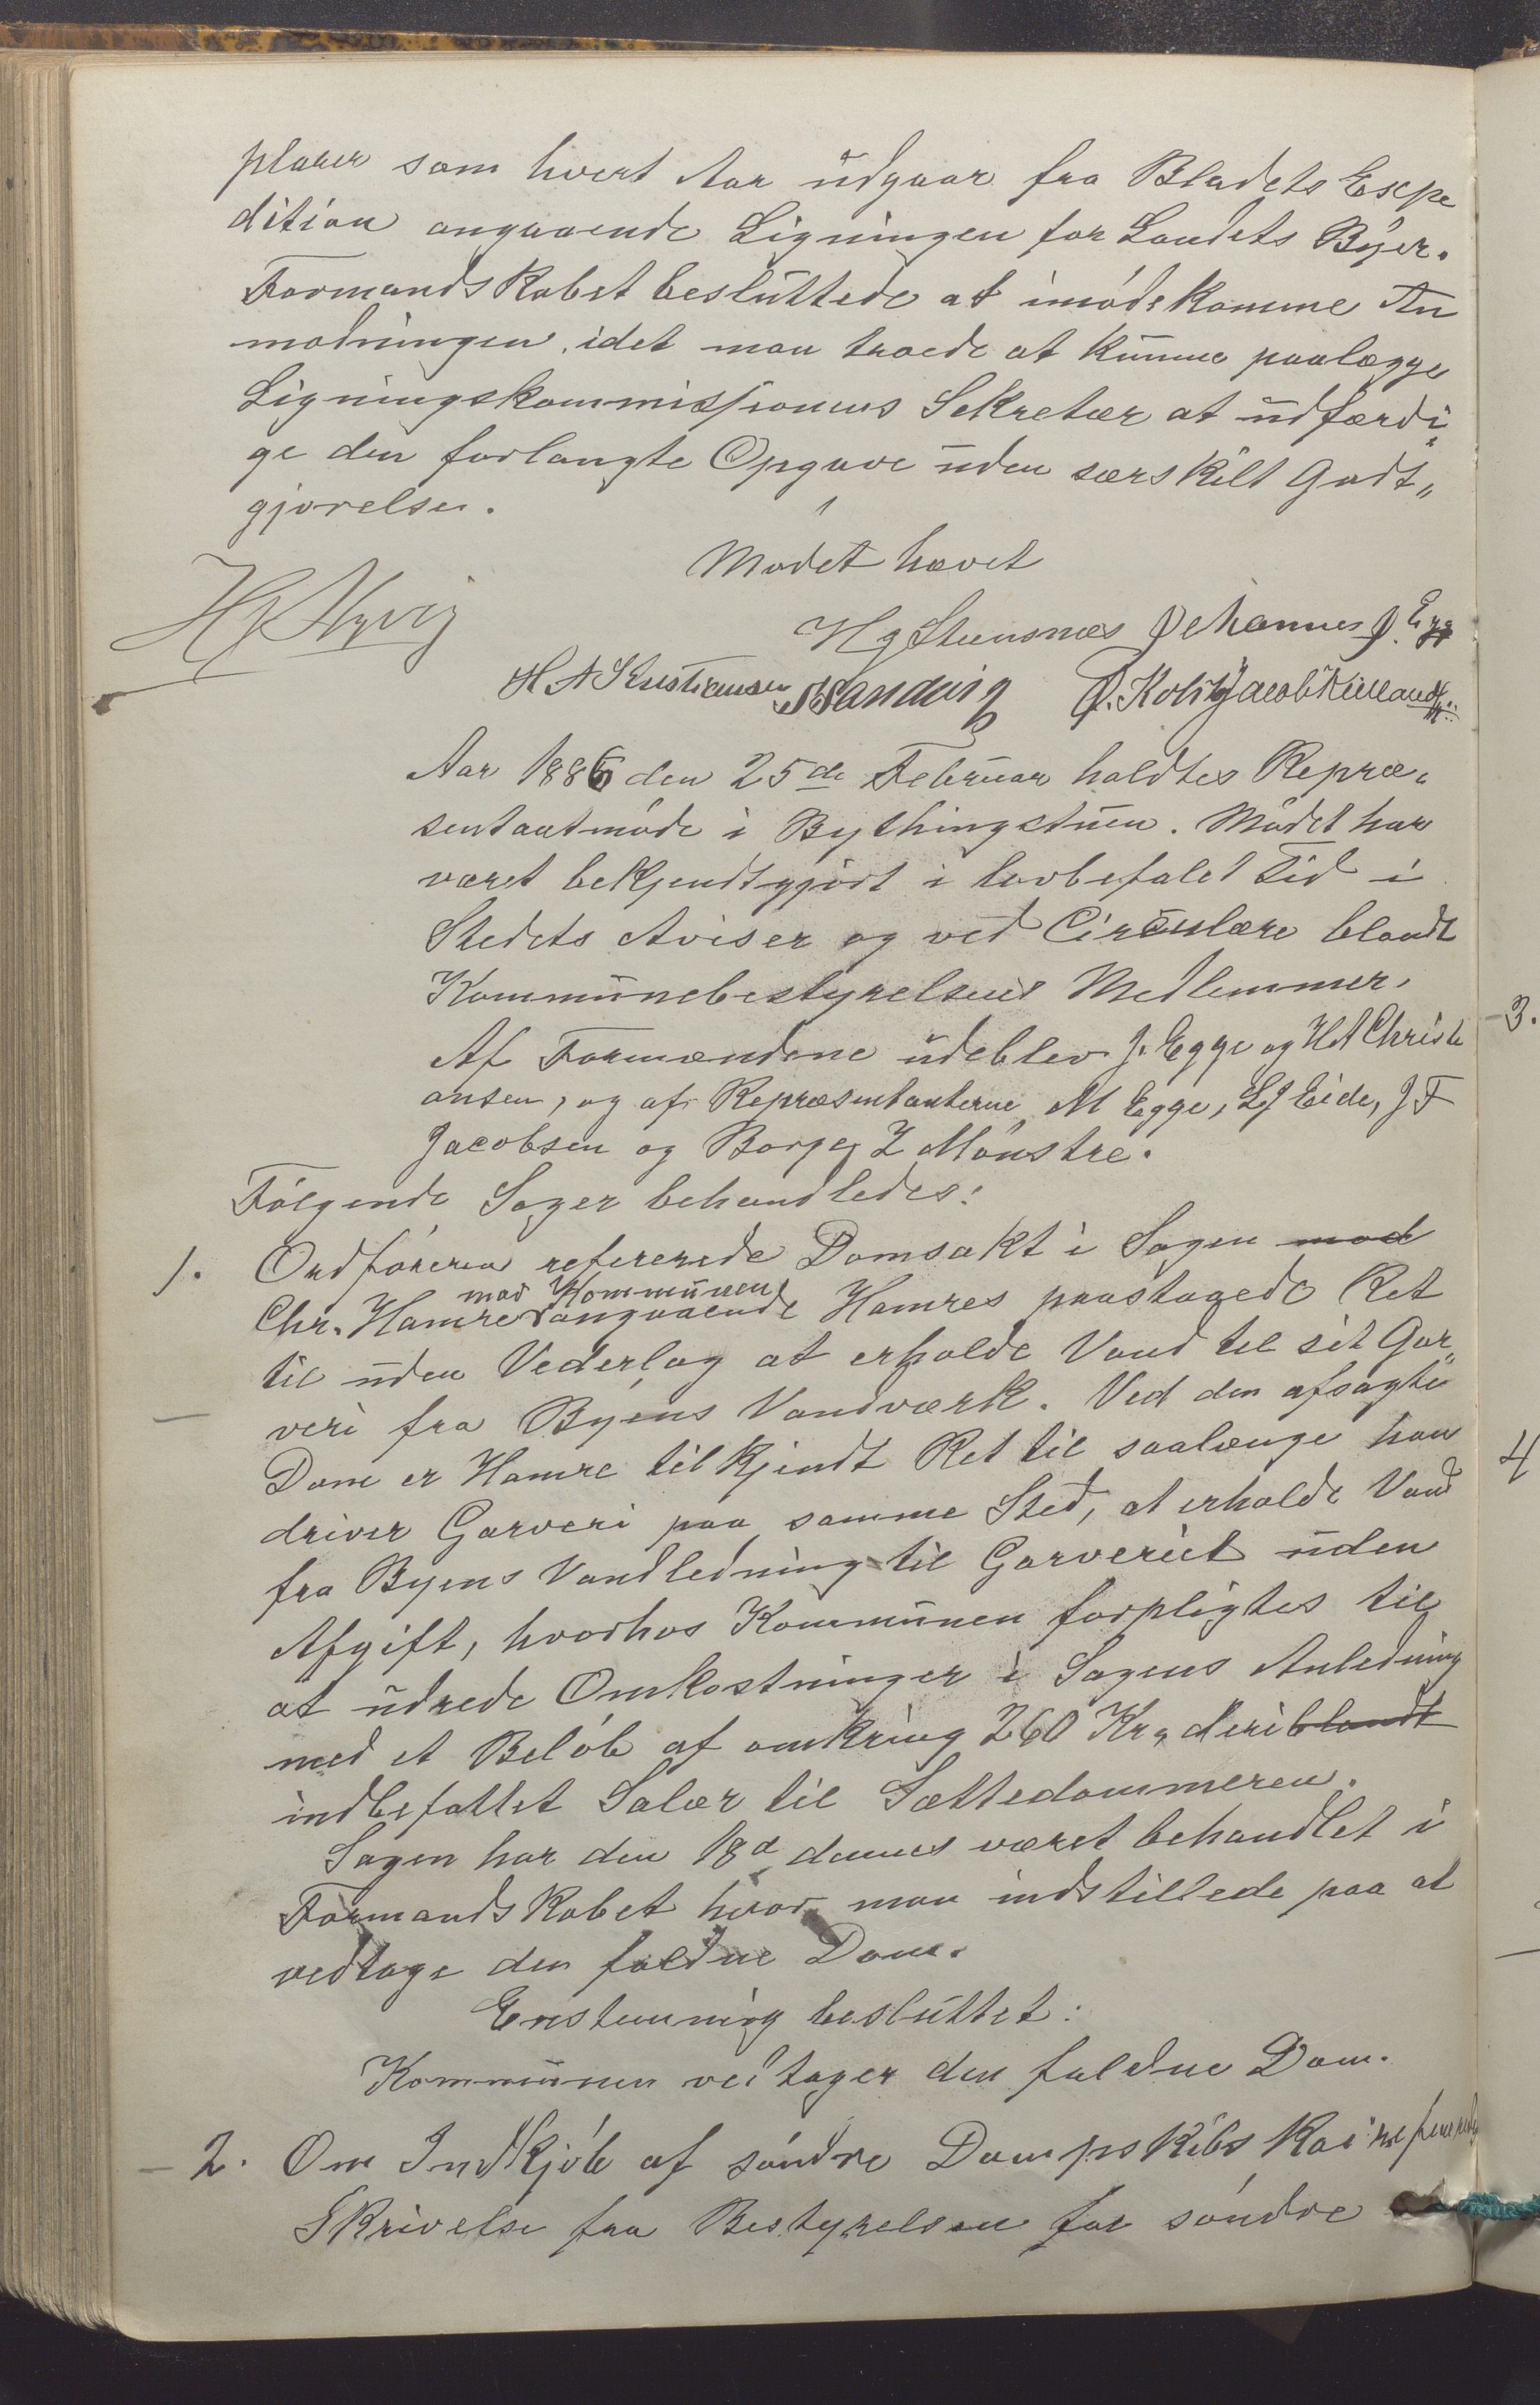 plarer som hvert Aar udgaar fra Bladets Expe
dition angaaende Ligningen for Landets Byer.
Formandskabet besluttede at imødekomme An
modningen, idet man troede at kunne paalægge
Ligningskommissionens Sekretær at udfærdi„
ge den forlangte Opgave uden særskilt Godt„
gjørelse.
Mødet hævet
Hg Steensnæs Johannes J. Egge
H A Kristiansen
Aar 1886 den 25de Februar holdtes Repræ„
sentantmøde i Bythingstuen. Mødet har
været bekjendtgjort i lovbefalet Tid i
Stedets Aviser og ved Circulære blandt
Kommunebestyrelsens Medlemmer.
Af Formændene udeblev J. Egge og H A Christi
ansen, og af Repræsentanterne M Egge, L J Eide, J F
Jacobsen og Børge Z Mønstre.
Følgende Sager behandledes:
1. Ordføreren refererede Domsakt i Sagen mod
Chr. Hamre mod Kommunen angaaende Hamres paastagede Ret
til uden Vederlag at erholde Vand til sit Gar„
veri fra Byens Vandværk. Ved den afsagte
Dom er Hamre tilkjendt Ret til saalænge han
driver Garveri paa samme Sted, at erholde Vand
fra Byens Vandledning til Garveriet uden
Afgift, hvorhos Kommunen forpligtes til
at udrede Omkostninger i Sagens Anledning
med et Beløb af omkring 260 Kr, deriblandt
indbefattet Salær til Sættedommeren.
Sagen har den 18d dennes været behandlet i
Formandskabet hvor man indstillede paa at
vedtage den faldne Dom.
Enstemmig besluttet:
Kommunen vedtager den faldne Dom.
2. Om Indkjøb af søndre Dampskibskai
Skrivelse fra Bestyrelsen for søndre
3.
4